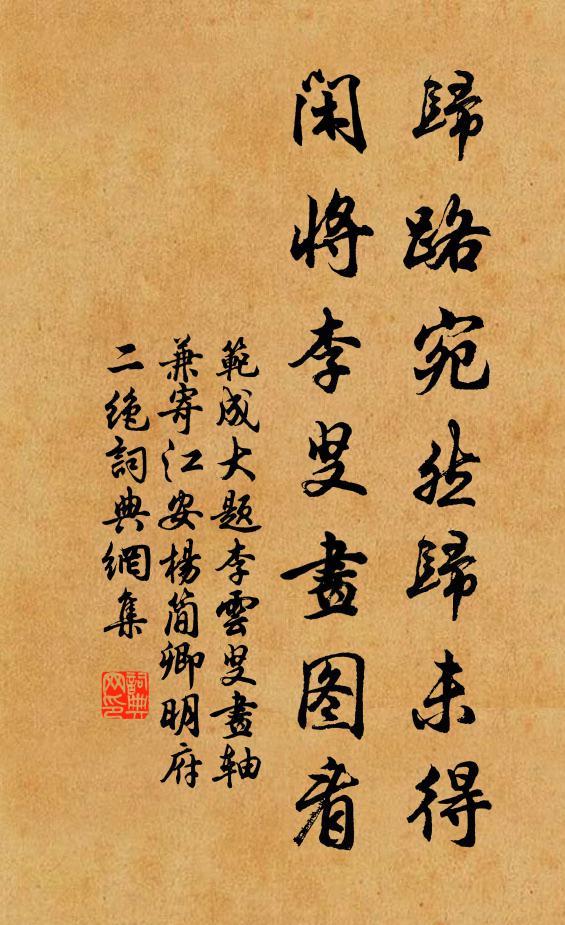 歸路宛然歸未得
閑將李叟畫图看
範成大題李雲叟畫軸
兼寄江安楊簡卿明府
二绝詞典網集
詞典网印